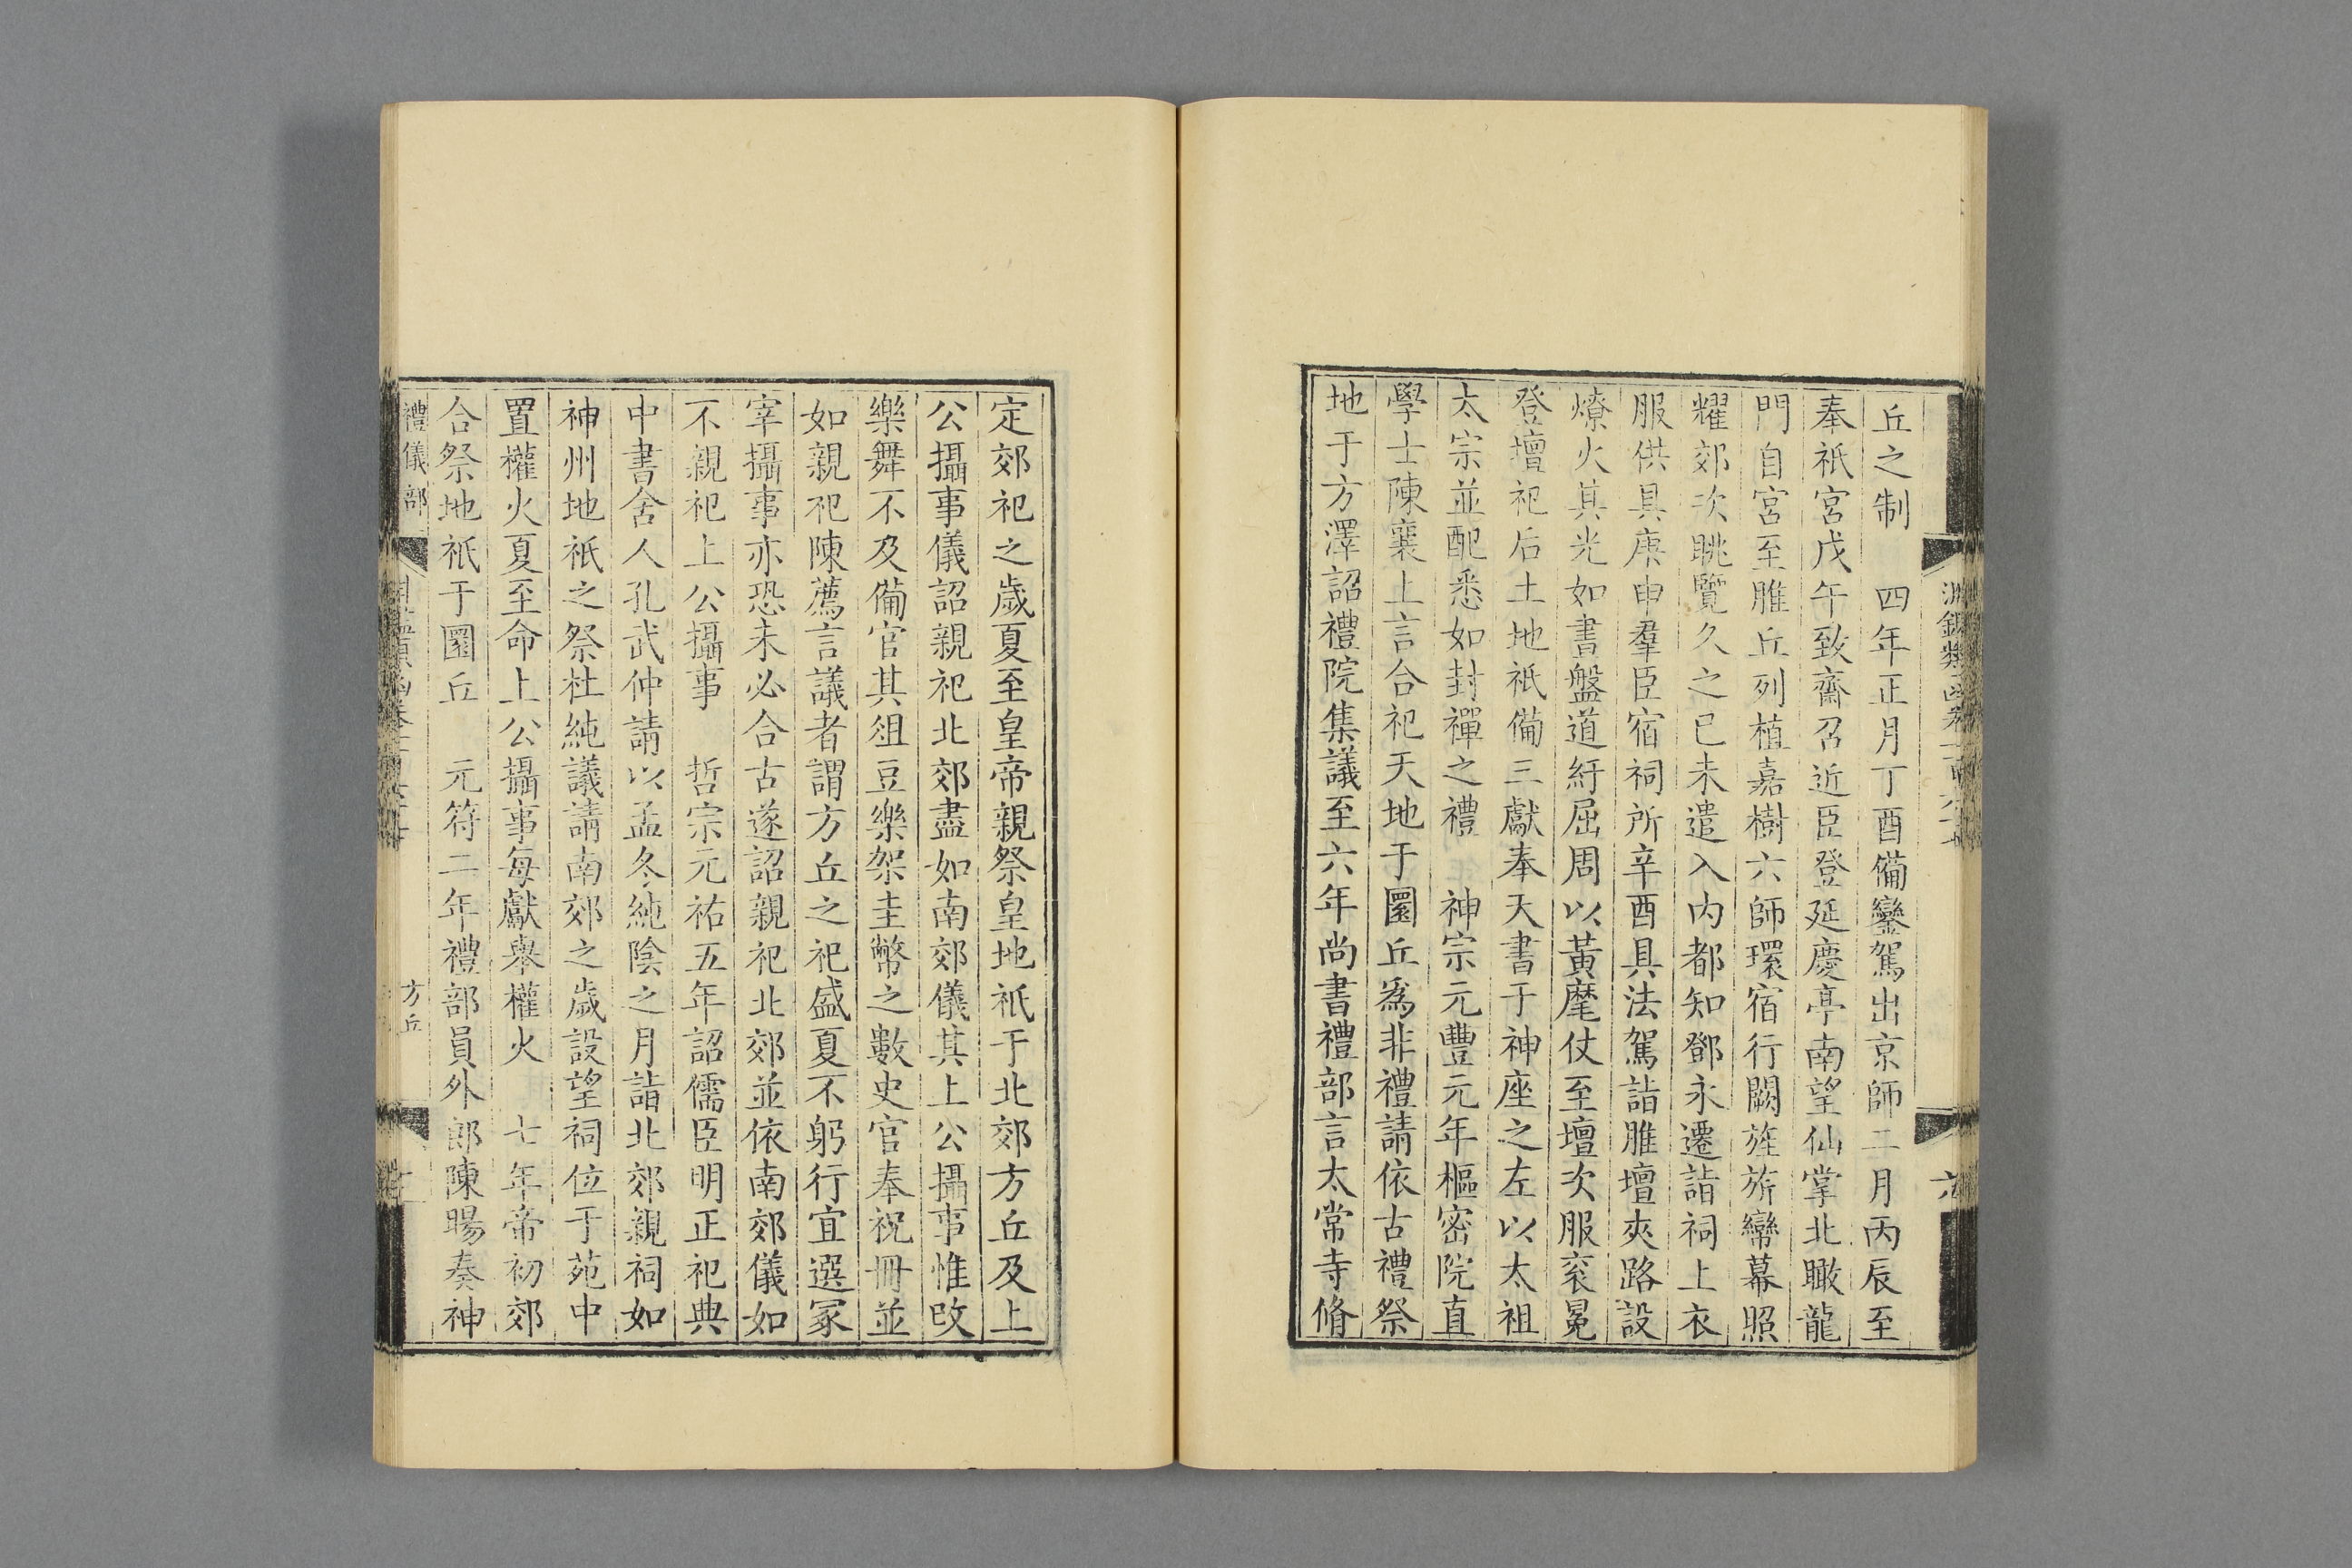 丘之制　四年正月丁酉備鑾駕出京師二月丙辰至
奉祇宮戊午致齋召近臣登延慶亭南望仙掌北瞰龍
門自宮至脽丘列植嘉樹六師環宿行闕旌旂巒幕照
耀郊次眺覽久之已未遣入內都知鄧永遷詣祠上衣
服供具庚申羣臣宿祠所辛酉具法駕詣脽壇夾路設
燎火其光如晝盤道紆屈周以黃麾仗至壇次服衮冕
登壇祀后土地祇備三獻奉天書于神座之左以太祖
太宗並配悉如封禪之禮　神宗元豐元年樞密院直
學士陳襄上言合祀天地于圜丘爲非禮請依古禮祭
地于方澤詔禮院集議至六年尚書禮部言太常寺脩
定郊祀之歲夏至皇帝親祭皇地祇于北郊方丘及上
公攝事儀詔親祀北郊盡如南郊儀其上公攝事惟改
樂舞不及備官其俎豆樂架圭幣之數史官奉祝冊並
如親祀陳薦言議者謂方丘之祀盛夏不躬行宜選冢
宰攝事亦恐未必合古遂詔親祀北郊並依南郊儀如
不親祀上公攝事　哲宗元祐五年詔儒臣明正祀典
中書舍人孔武仲請以孟冬純陰之月詣北郊親祠如
神州地祇之祭杜純議請南郊之歲設望祠位于苑中
置權火夏至命上公攝事每獻舉權火　七年帝初郊
合祭地祇于圜丘　元符二年禮部員外郎陳暘奏神
禮儀部
方丘